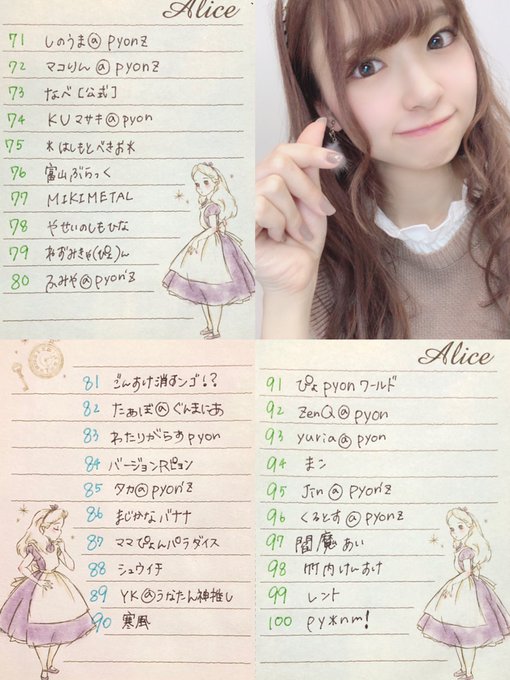 Alice
71 しのうま@pyon'z
72 マコりん@pyon'z
73 なべ[公式]
74 KUマサキ@pyon
75 *はしもとべきお*
76 富山ぶらっく
77 MIKIMETAL
78 やせいのしもひな
79 ねずみきゃ(ぴょ)ん
80 ふみや@pyon'z
81 ごんすけ消すンゴ!?
82 たぁぼ@ぐんまにあ
83 わたりがらすpyon
84 バージョンRピョン
85 タカ@pyon'z
86 まじかなバナナ
87 ママぴょんパラダイス
88 シュウイチ
89 YK@うなたん神推し
90 寒風
Alice
91 ぴょpyonワールド
92 ZenQ@pyon
93 yuria@pyon
94 まこ
95 Jin@pyon'z
96 くろとす@pyon'z
97 閻魔あい
98 竹内けいすけ
99 レント
100 py*nm!